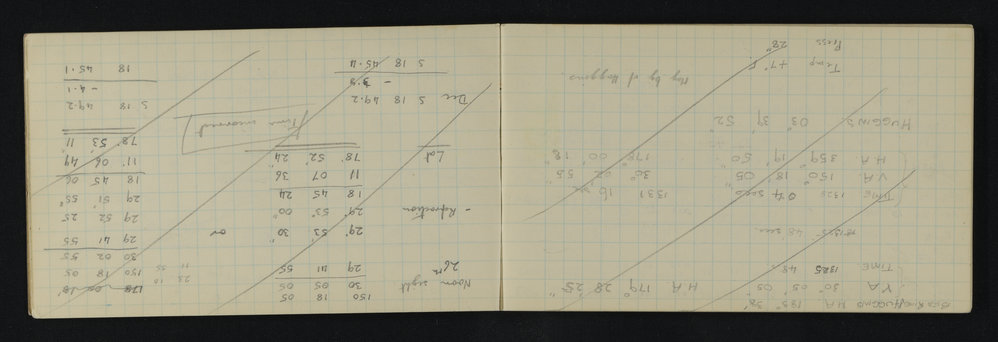 HUGGINS H.A. 185° 38'
V.A 30° 05' 05" H.A 179° 28' 25"
TIME. 1325 48 s
48 sec
TIME 1328 04 secs 1331 16
V.A 150° 18' 05" 30° 02' 55"
H.A. 359 19' 50" 178° 00' 18"
HUGGINS 03° 39' 52"
Mag by of Huggins.
Temp +7°F
Press 28"
Noon sight
150 18 05
30 05 05
29 41 55
29° 53' 30"
- Refraction 29° 53' 00"
18 45 24
11 07 36
Lat 78° 52' 24"
Time incorrect
Dec S 18 49.2
- 3.8
S 18 45.4
150 18 05
30 02 55
29 41 55
or
29 52 25
29 51 55"
18 45 06
11° 06 49
78° 53' 11"
S 18 49.2
- 4.1
18 45.1